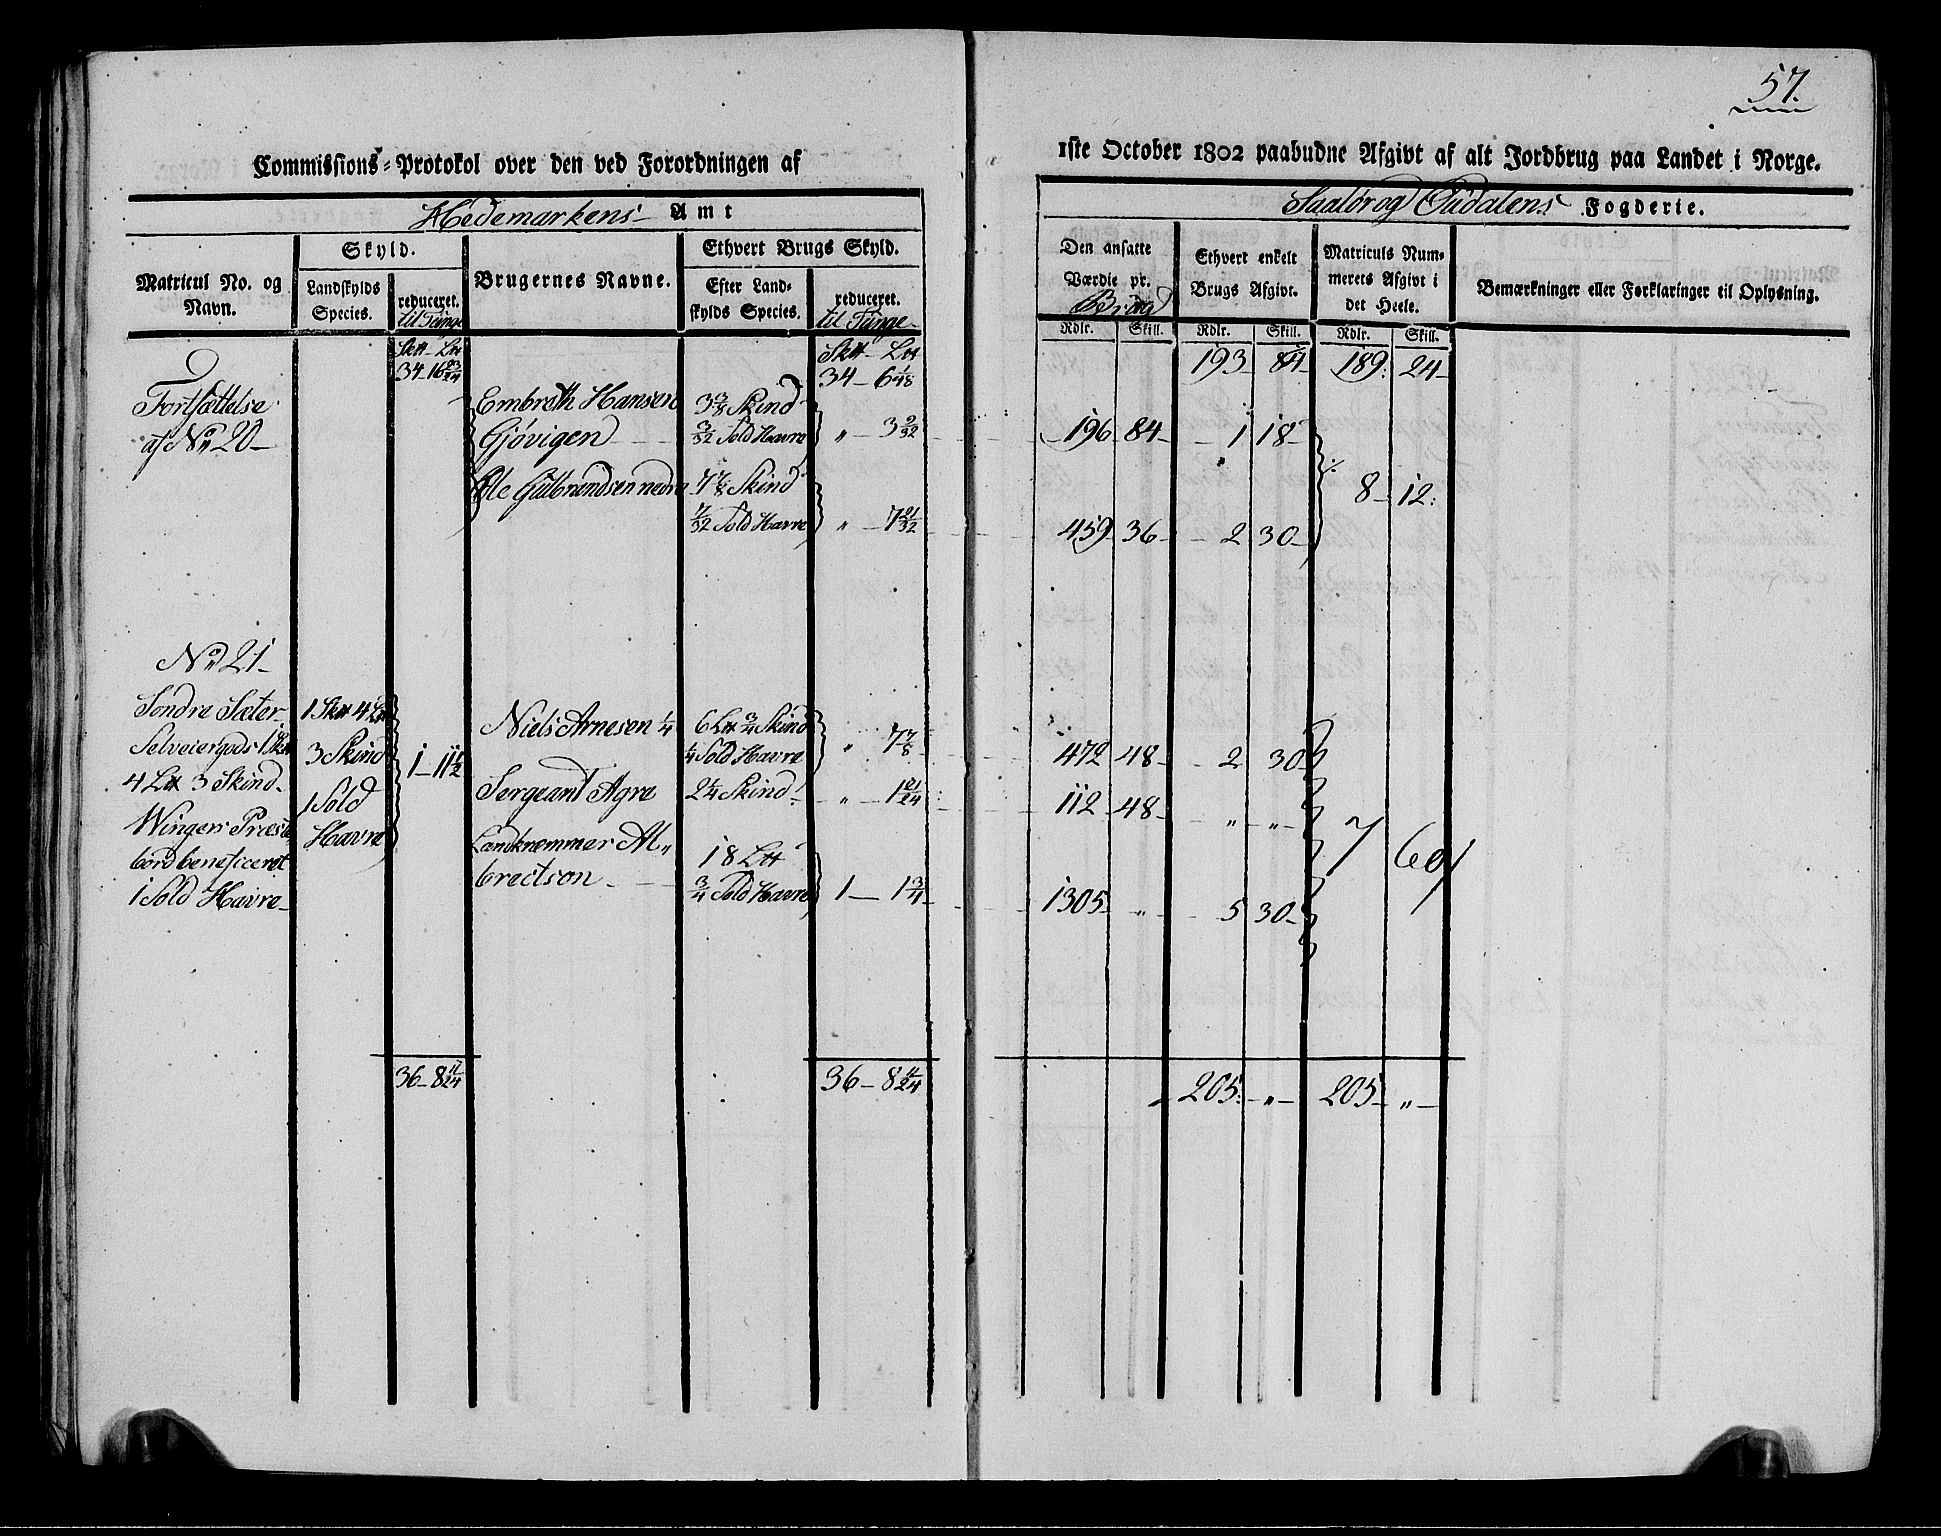 57.
Commissions-Protokol over den ved Forordningen af
1ste October 1802 paabudne Afgivt af alt Jordbrug paa Landet i Norge.
Hedemarkens Amt
Fogderie.
Matricul No. og Navn.
Skyld.
Landskylds Species.
reduceret.
til Tunge
Brugernes Navne.
Ethvert Brugs Skyld.
Efter Landskylds Species.
reduceret.
til Tunge
Den ansatte Værdie pr.
Brug
Ethvert enkelt Brugs Afgivt.
Matriculs Nummerets Afgivt i det Heele.
Bemærkninger eller Forklaringer til Oplysning.
Rdlr. Skill. Rdlr. Skill. Rdlr. Skill.
34-16 23/24
34-6 1/48
193 84 189 24
Fortsættelse
af No 20
Embreth Hansen 3 3/8 Skind
Gjøvigen 3/32 Sold Havre " 3 9/32 196 84 1 18
8 12
Ole Gulbrandsen nedre 7 7/8 Skind
7/32 Sold Havre " 7 21/32 459 36 2 30
No 21
Søndre Sæter
Selveiergods 1 Skll
4 Lll 3 Skind
Wingers Præste
bord beneficeret
1 Sold Havre
3 Skind
1 Sold
Havre
1-11 1/2
Niels Arnesen 1/4 6 Lll 3/4 Skind
1/4 Sold Havre " 7 7/8 472 48 2 30
Sergeant Agre 2 1/4 Skind " 1 21/24 112 48 " "
Landkræmmer Al"
brectson 18 Lll
3/4 Sold Havre 1 1 3/4 1305 " 5 30
7 69
36-8 11/24
36-8 11/24
205 " 205 "